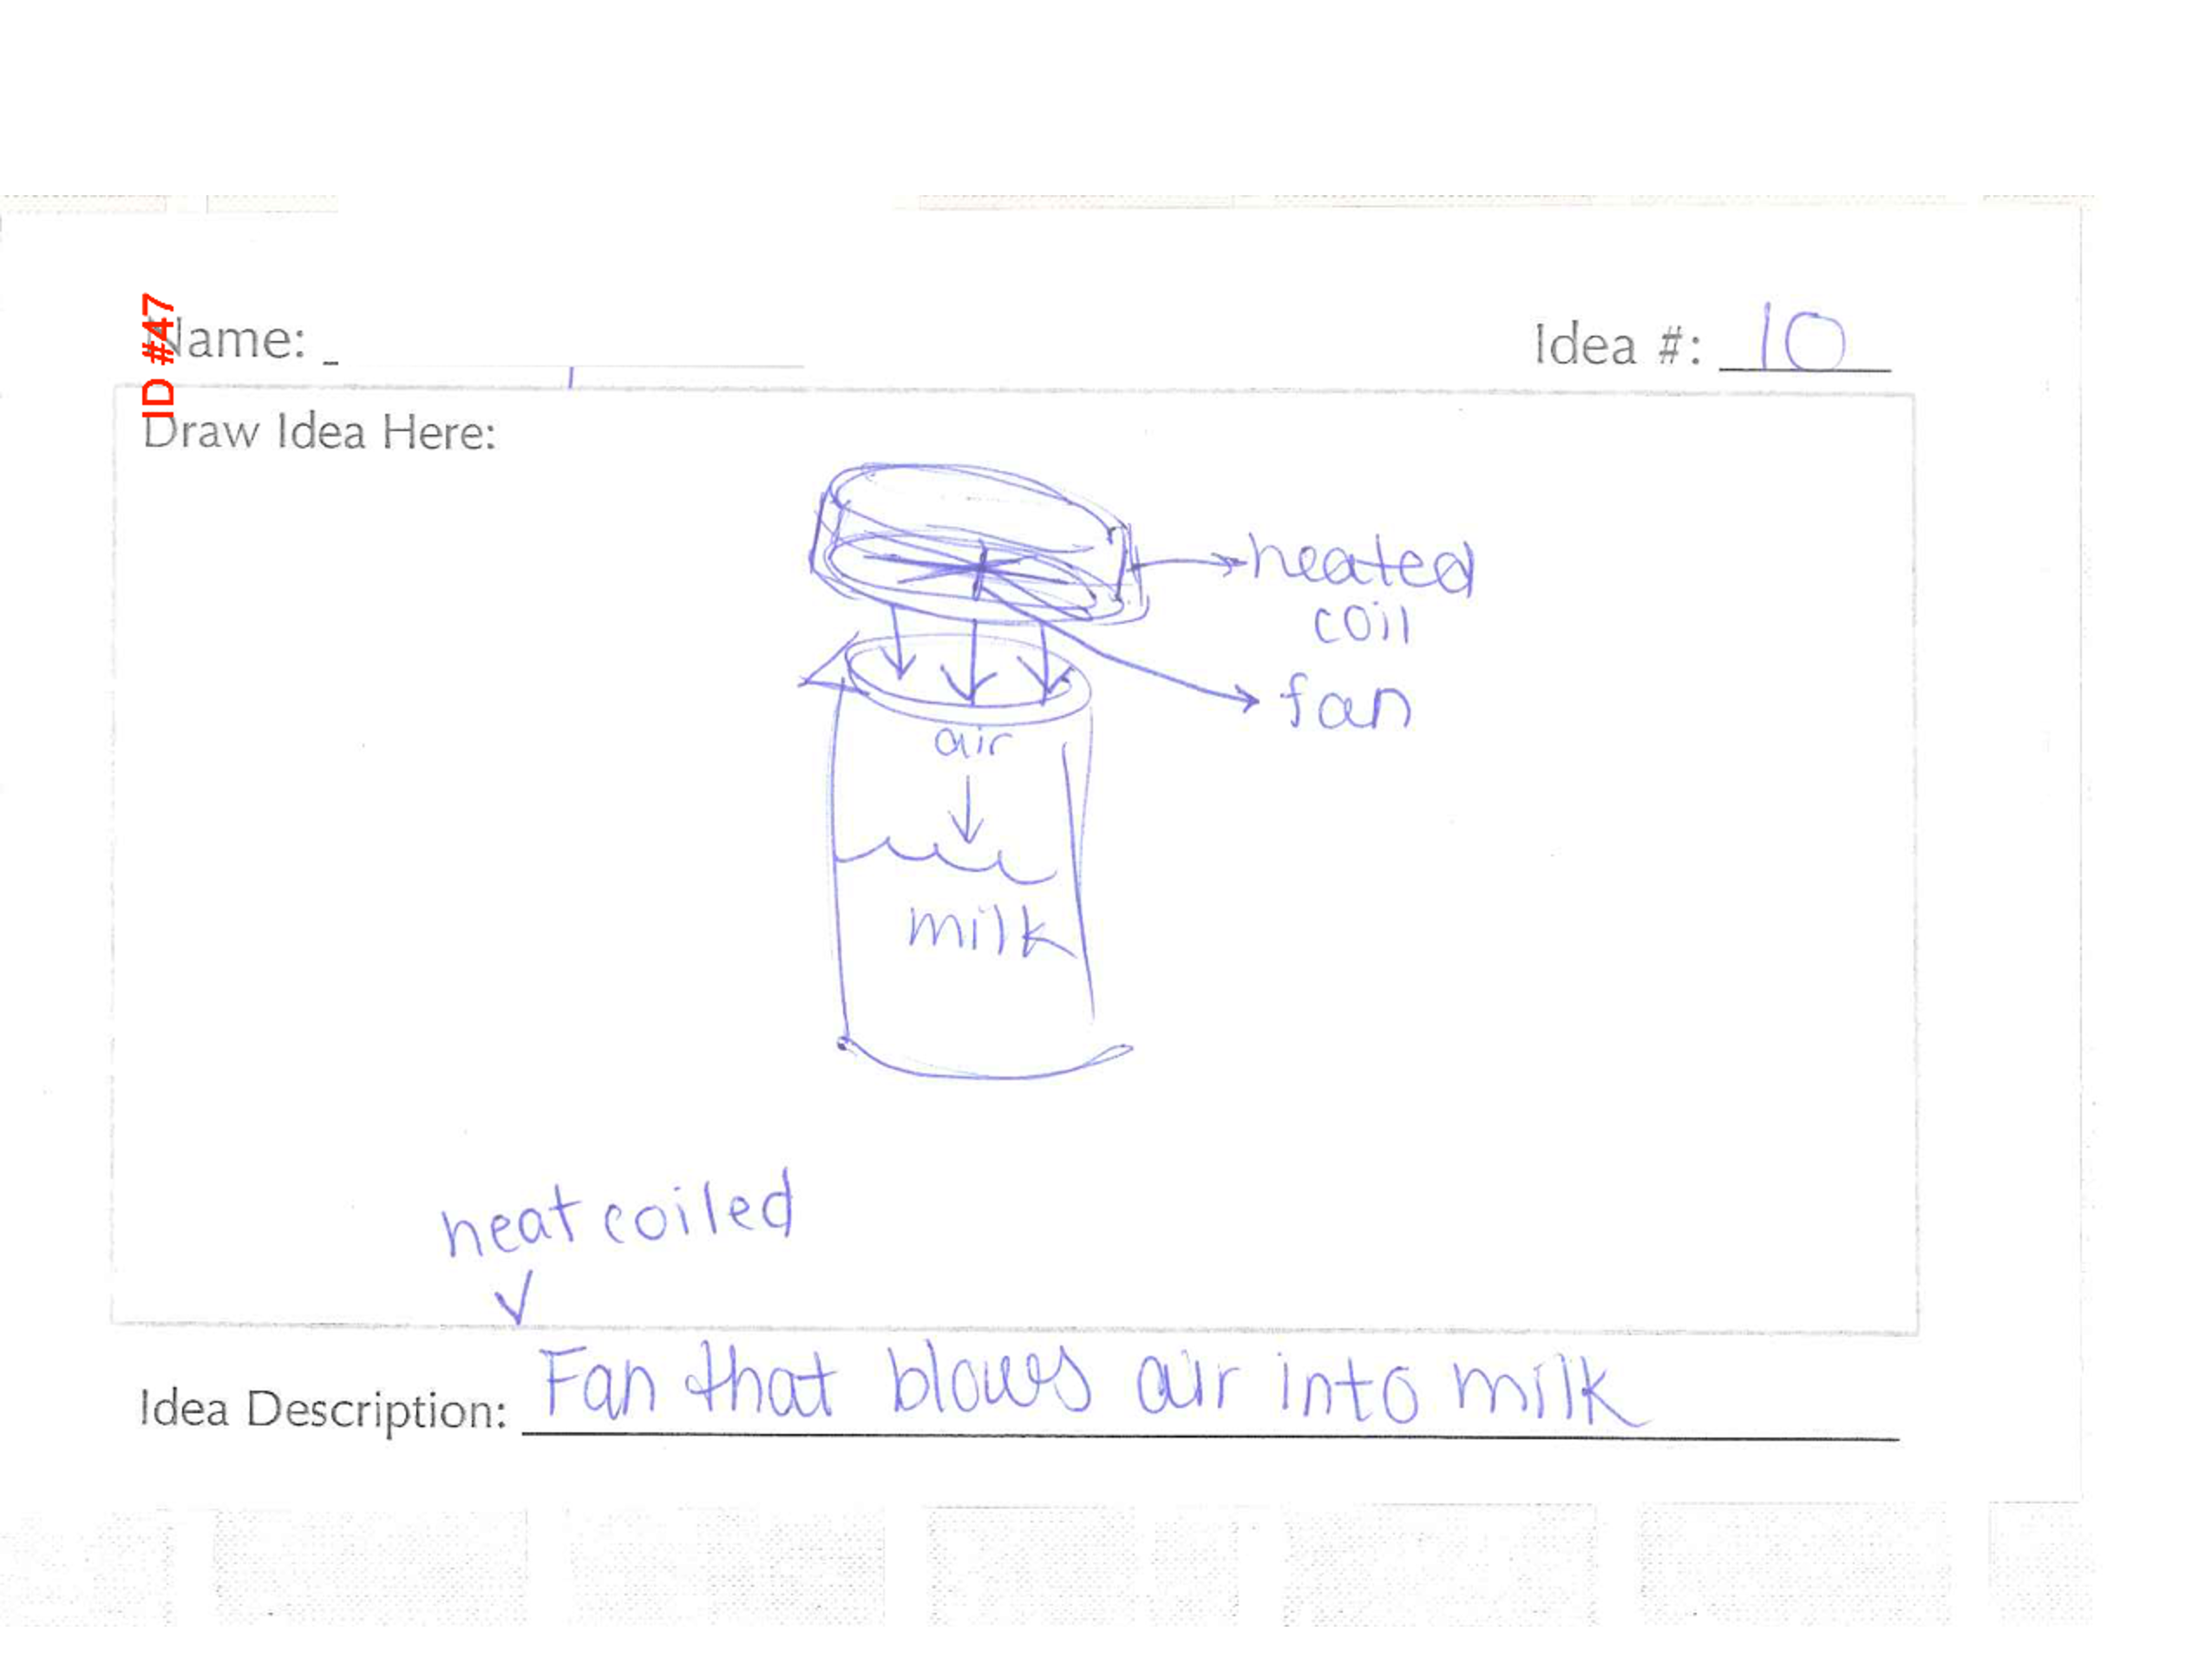 ID #47
Name:
Idea #: 10
Draw Idea Here:
heated
coil
fan
air
milk
heat coiled
Idea Description: Fan that blows air into milk